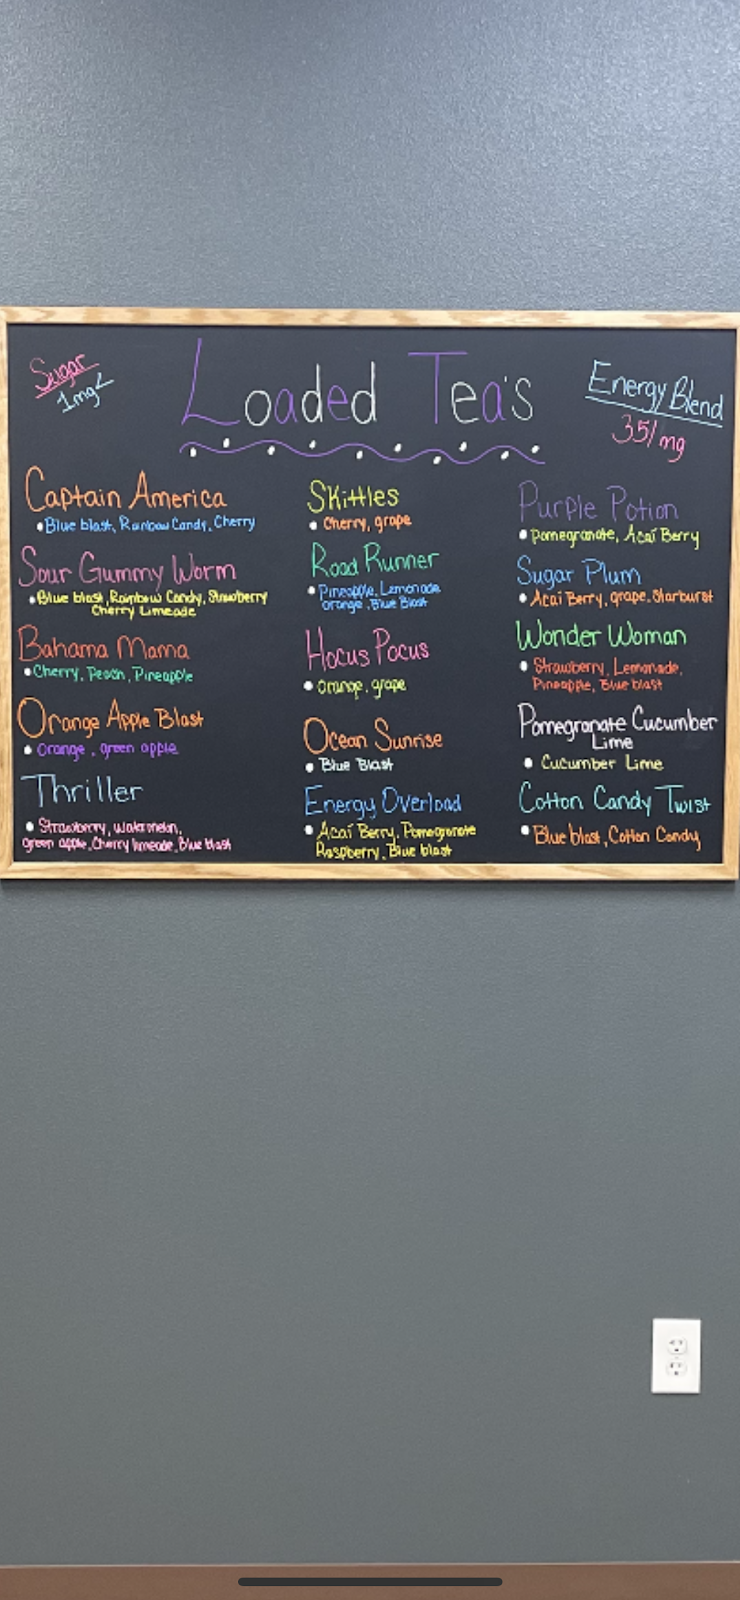 Sugar
1mg<
Loaded Tea's
Energy Blend
351mg
Captain America
Blue blast, Rainbow Candy, Cherry
Sour Gummy Worm
Blue blast, Rainbow Candy, Strawberry
Cherry Limeade
Bahama Mama
Cherry, Peach, Pineapple
Orange Apple Blast
Orange, green apple
Thriller
Strawberry, watermelon,
green apple, Cherry limeade, Blue blast
Skittles
Cherry, grape
Road Runner
Pineapple, Lemonade
orange, Blue Blast
Hocus Pocus
Orange, grape
Ocean Sunrise
Blue Blast
Energy Overload
Acaí Berry, Pomegranate
Raspberry, Blue blast
Purple Potion
Pomegranate, Acaí Berry
Sugar Plum
Acaí Berry, grape, Starburst
Wonder Woman
Strawberry, Lemonade,
Pineapple, Blue blast
Pomegranate Cucumber
Lime
Cucumber Lime
Cotton Candy Twist
Blue blast, Cotton Candy